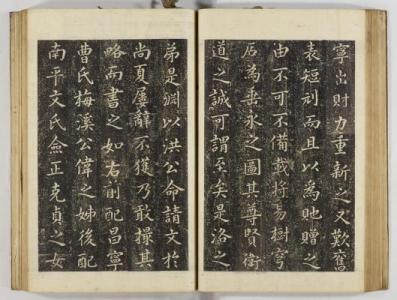 寧出財力重新之又歎舊
表短刻而且以為貤贈之
由不可不備載將易樹穹
石為垂永之圖其尊賢衛
道之誠可謂至矣是洛之
弟是淵以洪公命請文於
尚夏屢辭不獲乃敢撮其
略而書之如右前配昌寧
曹氏梅溪公偉之姊後配
南平文氏僉正克貞之女